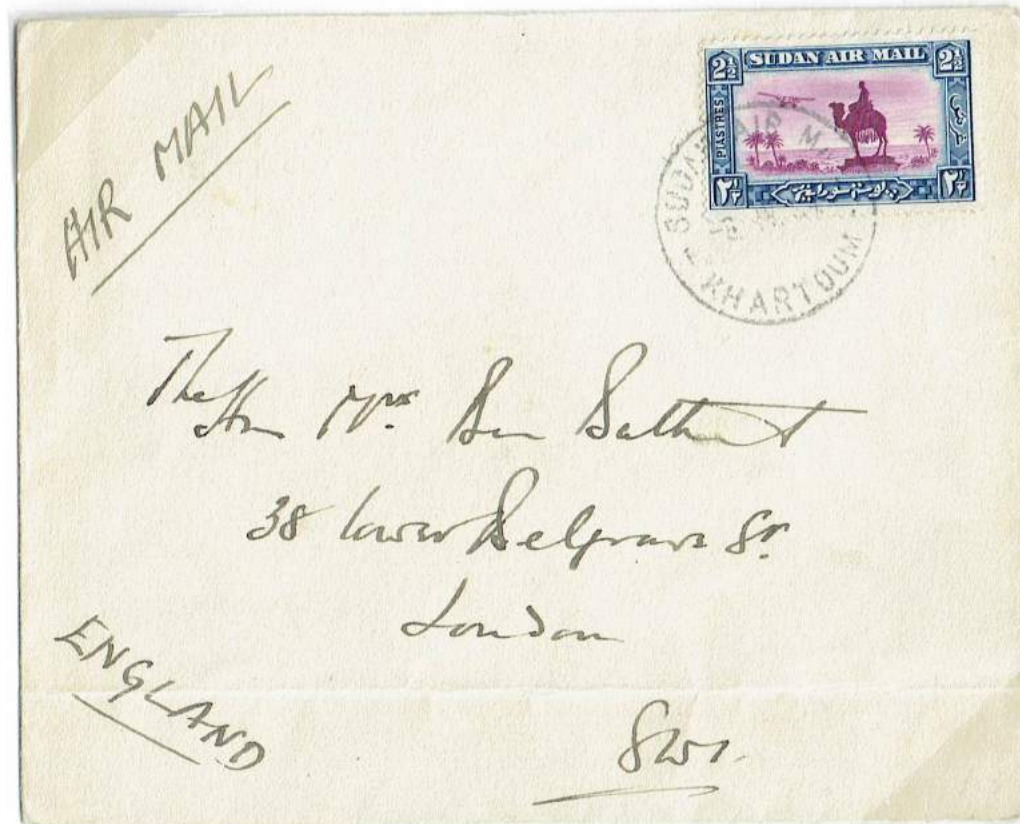 AIR MAIL
2½ SUDAN AIR MAIL 2½
PIASTRES
٢½ ٢½
SUDAN AIR MA
KHARTOUM
The Hon Mrs. Ben Bathurst
38 Lower Belgrave St.
London
SW1.
ENGLAND